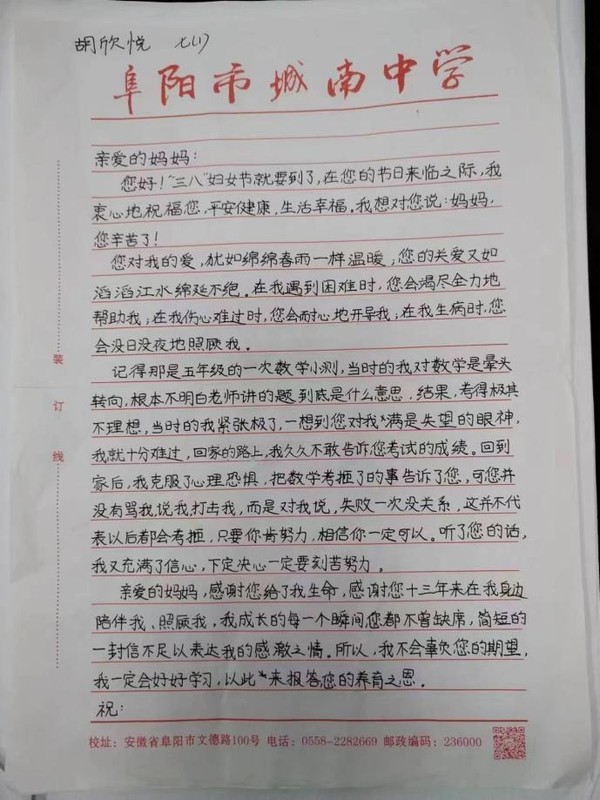 胡欣悦 七(1)
阜阳市城南中学
亲爱的妈妈：
您好！“三八”妇女节就要到了，在您的节日来临之际，我
衷心地祝福您，平安健康，生活幸福。我想对您说：妈妈，
您辛苦了！
您对我的爱，犹如绵绵春雨一样温暖；您的关爱又如
滔滔江水绵延不绝。在我遇到困难时，您会竭尽全力地
帮助我；在我伤心难过时，您会耐心地开导我；在我生病时，您
会没日没夜地照顾我。
记得那是五年级的一次数学小测，当时的我对数学是晕头
转向，根本不明白老师讲的题到底是什么意思，结果，考得极其
不理想，当时的我紧张极了，一想到您对我满是失望的眼神，
我就十分难过，回家的路上，我久久不敢告诉您考试的成绩。回到
家后，我克服了心理恐惧，把数学考砸了的事告诉了您，可您并
没有骂我，说我，打击我，而是对我说，失败一次没关系，这并不代
表以后都会考砸，只要你肯努力，相信你一定可以。听了您的话，
我又充满了信心，下定决心一定要刻苦努力。
亲爱的妈妈，感谢您给了我生命，感谢您十三年来在我身边
陪伴我、照顾我，我成长的每一个瞬间您都不曾缺席，简短的
一封信不足以表达我的感激之情。所以，我不会辜负您的期望，
我一定会好好学习，以此来报答您的养育之恩。
祝：
装
订
线
校址：安徽省阜阳市文德路100号 电话：0558-2282669 邮政编码：236000